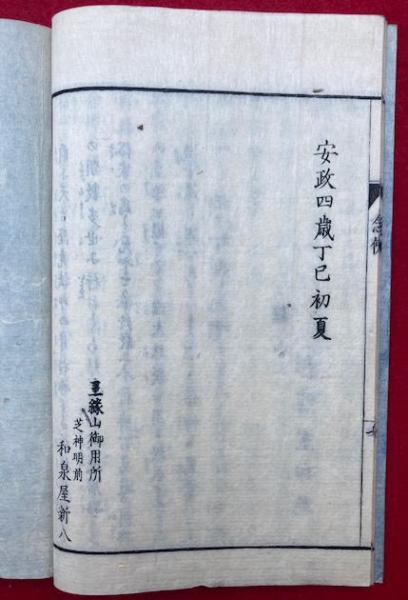 安政四歳丁巳初夏
三縁山御用所
芝神明前
和泉屋新八